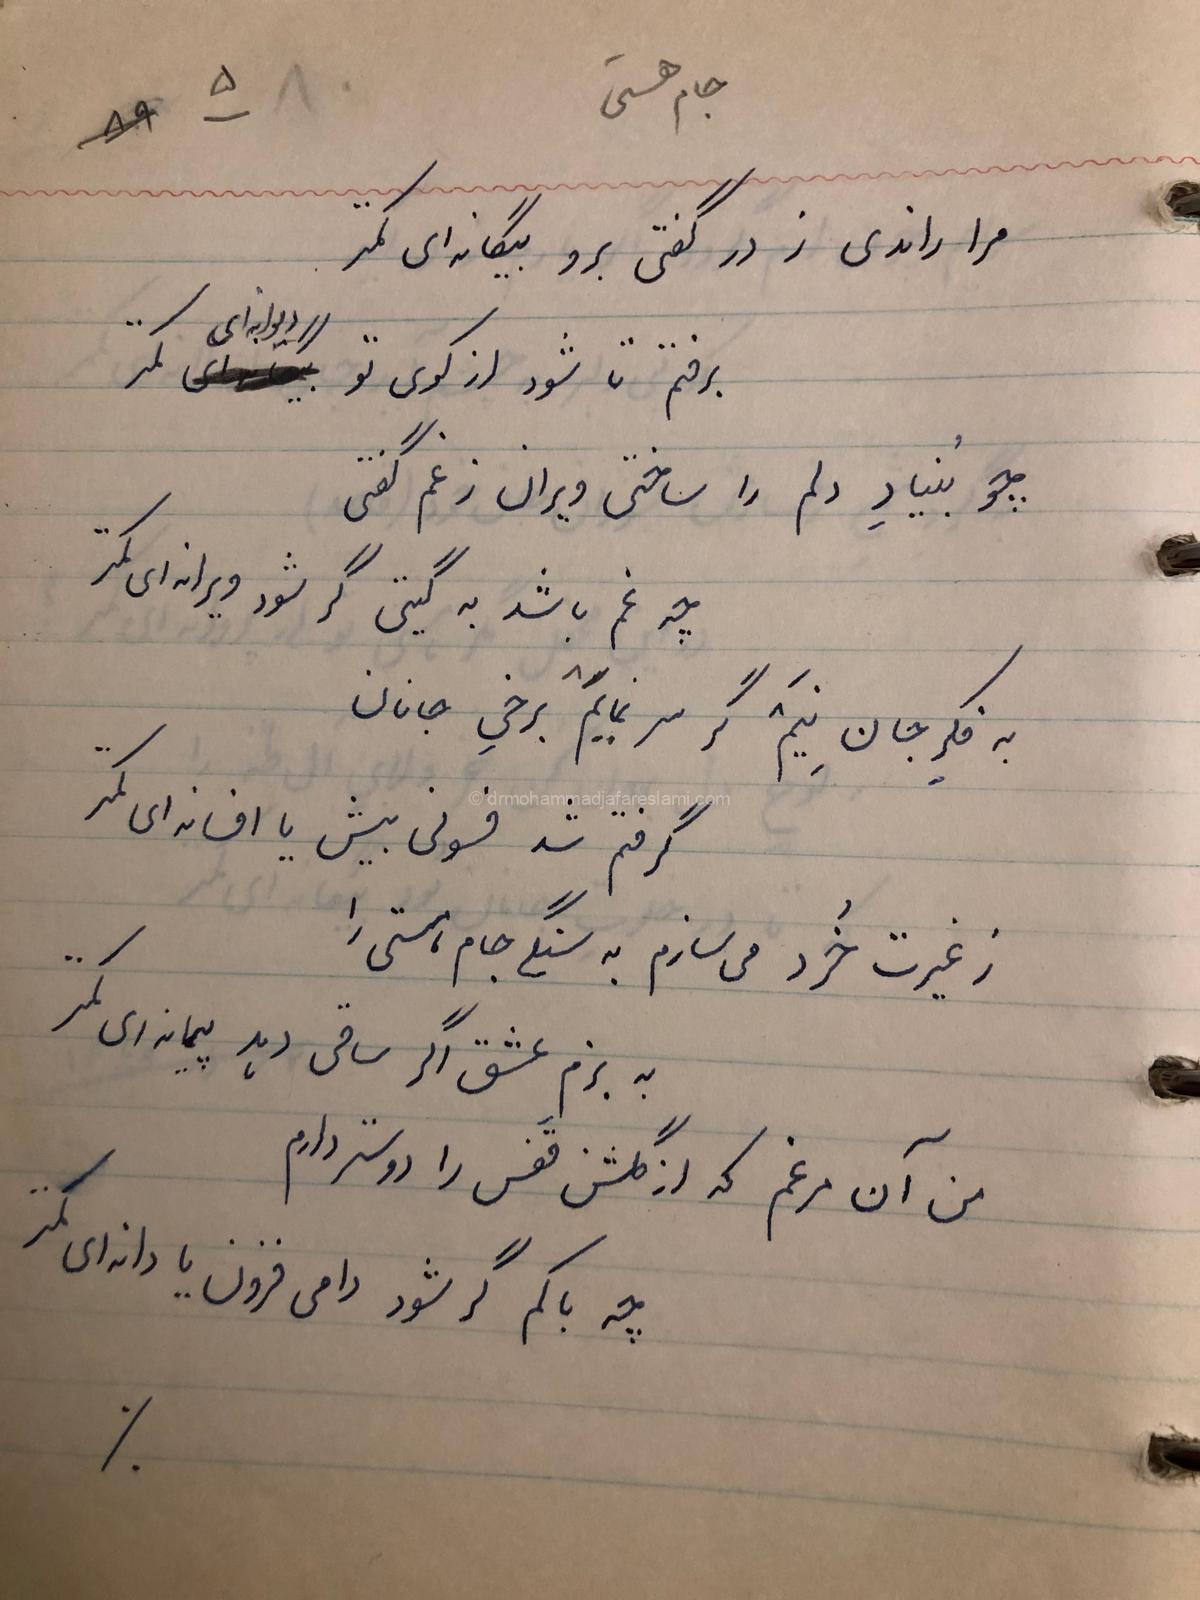 جام هستی
۸۰ ۵ ۸۹
مرا راندی ز در گفتی برو بیگانه‌ای کمتر
دیوانه‌ای
برفتم تا شود از کوی تو کمتر
چو بُنیادِ دلم را ساختی ویران ز غم گفتی
چه غم باشد به گیتی گر شود ویرانه‌ای کمتر
به فکرِ جان نِیَم گر سر نمایم برخیِ جانان
© drmohammadjafareslami.com
گرفتم شد فسونی بیش یا افسانه‌ای کمتر
ز غیرت خُرد می‌سازم به سنگی جام هستی را
به بزم عشق اگر ساقی دهد پیمانه‌ای کمتر
من آن مرغم که از گلشن قَفَس را دوستر دارم
چه باکم گر شود دامی فزون یا دانه‌ای کمتر